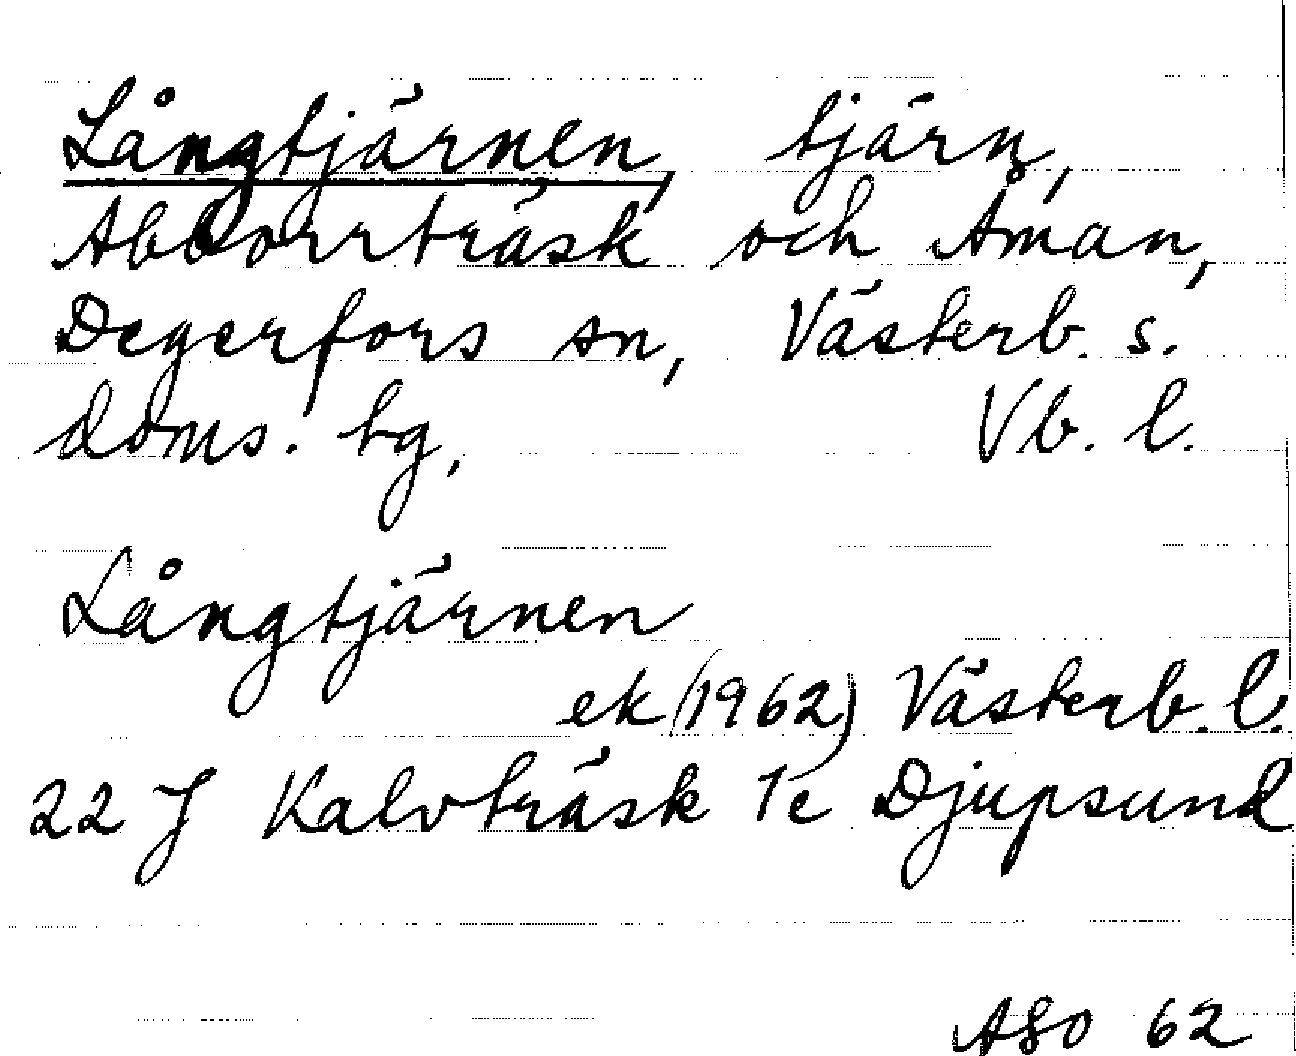 Långtjärnen, tjärn,
Abborrträsk och Åman,
Degerfors sn, Västerb. s.
doms. tg, Vb. l.
Långtjärnen
ek (1962) Västerb. l.
22 J Kalvträsk 1e Djupsund
ASO 62